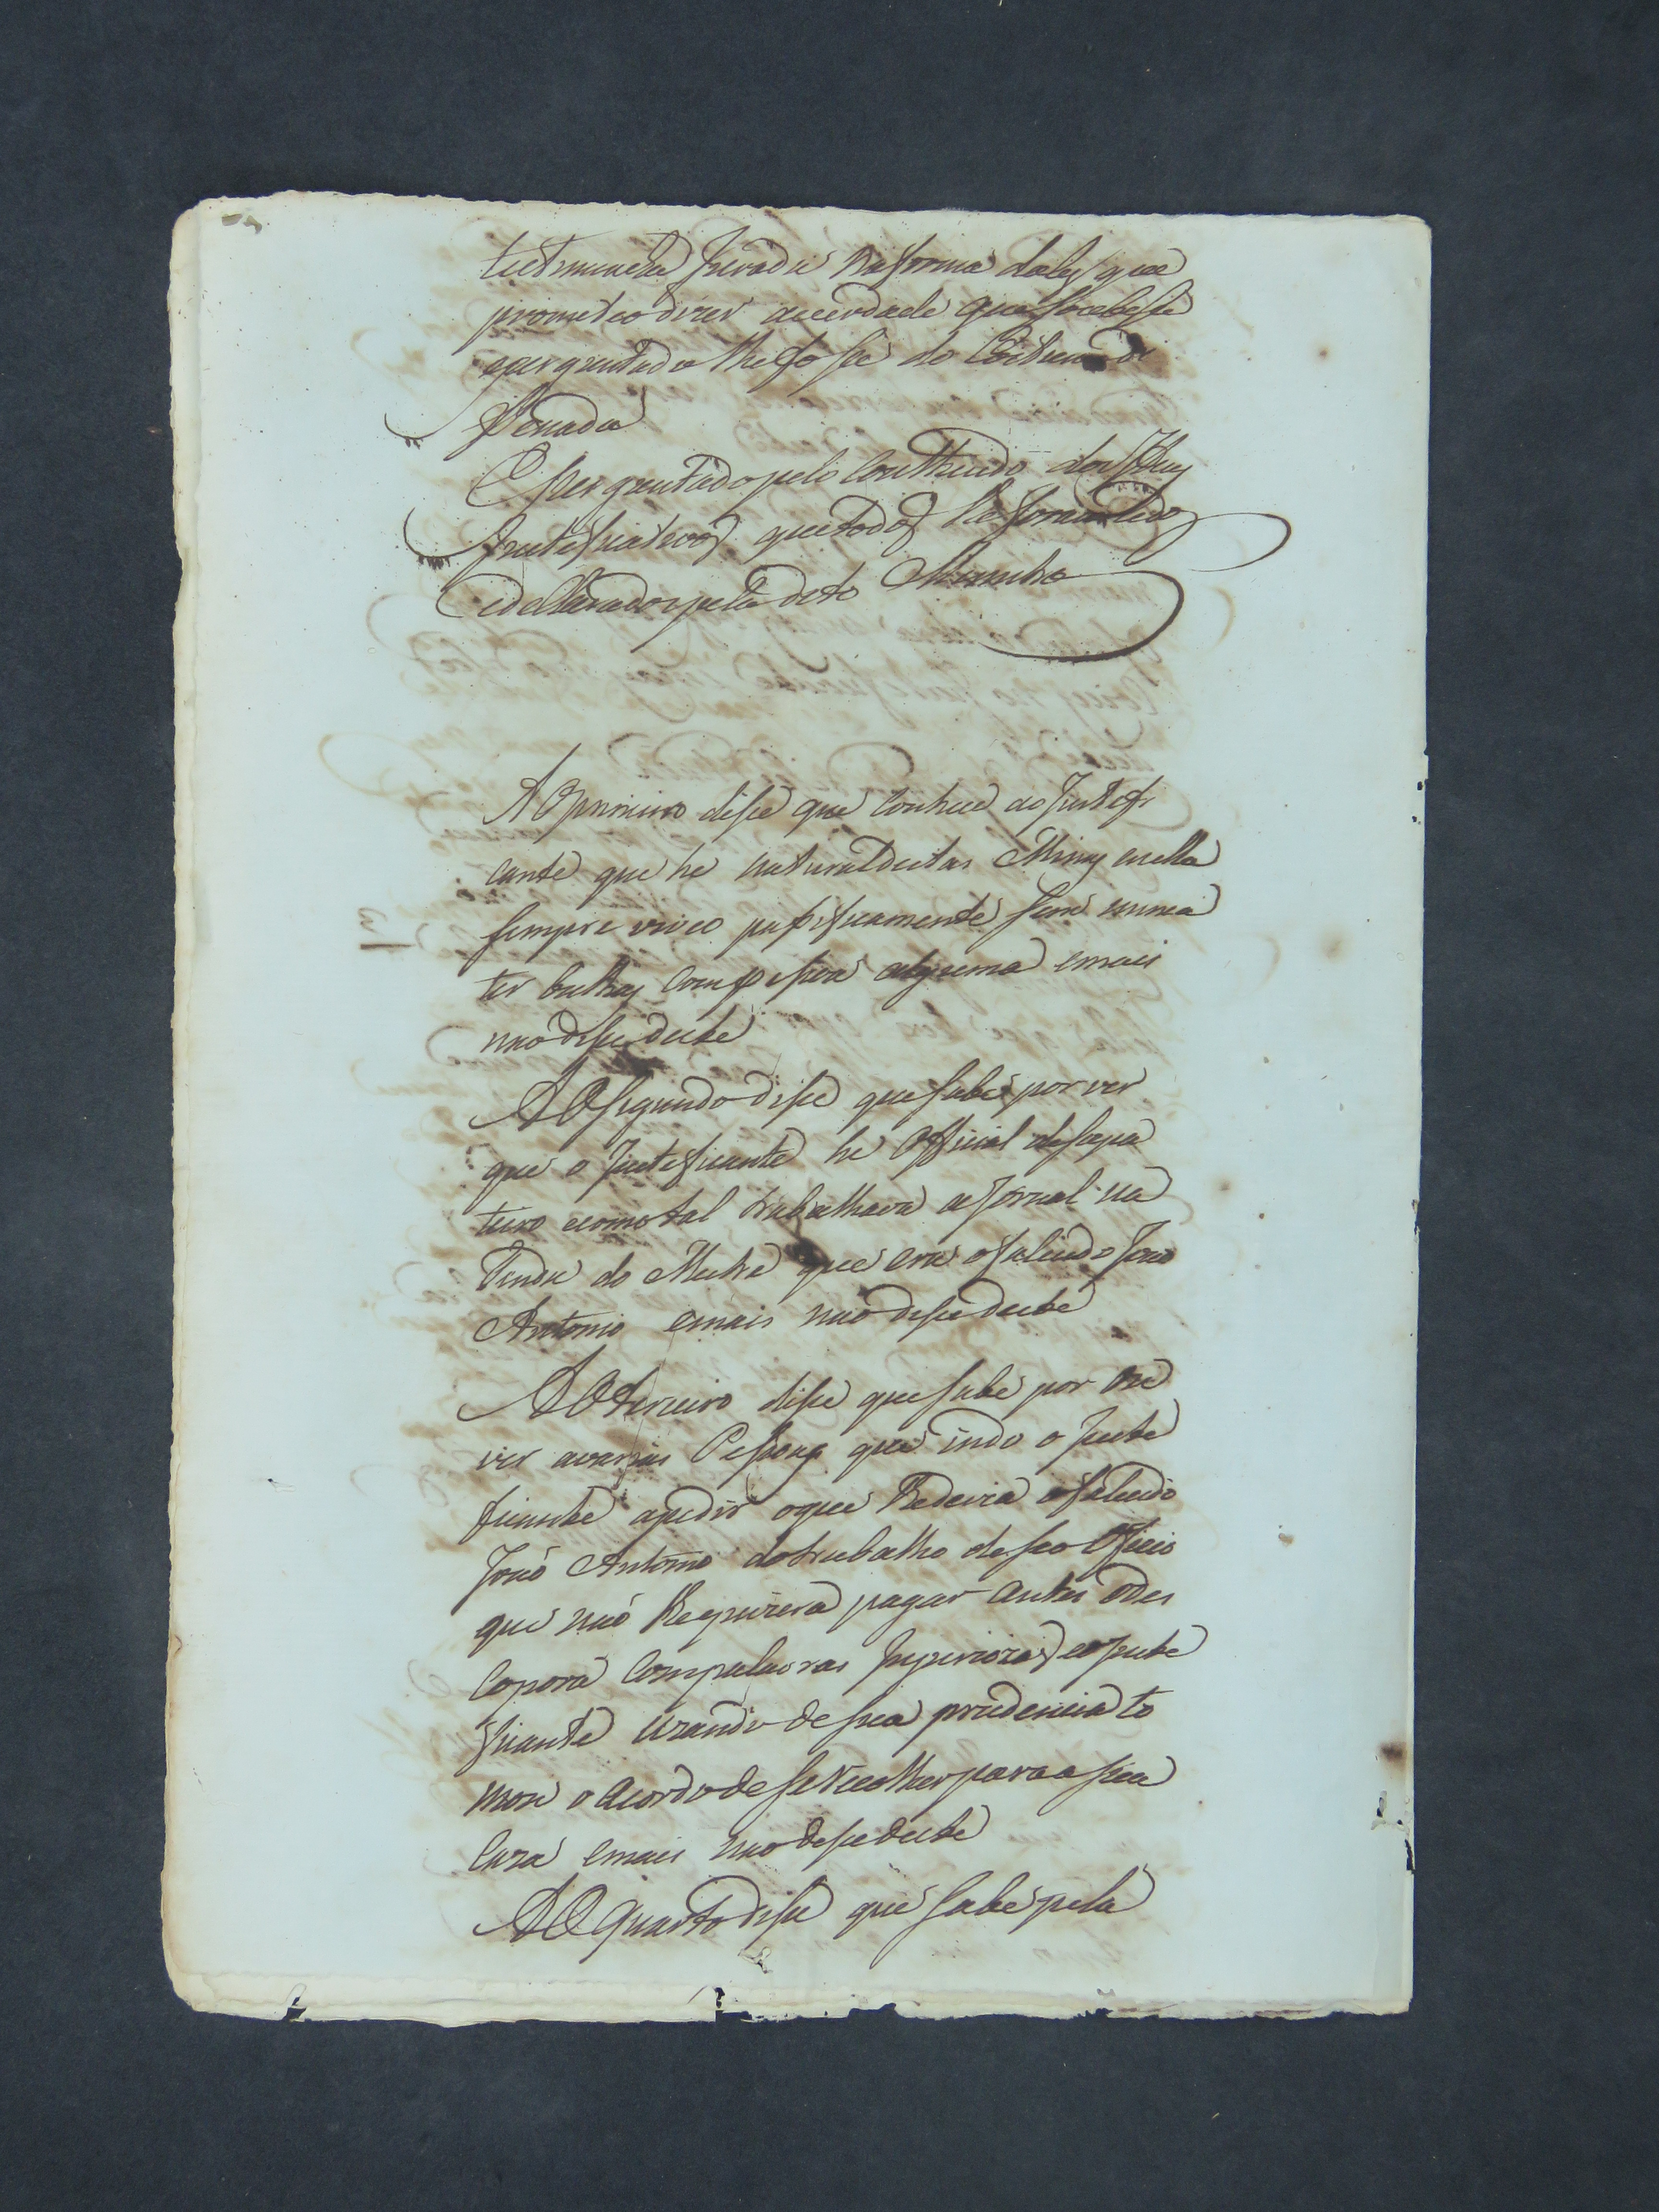 testemunha Jurada na forma daley que
prometeo dizer averdade que soubesse
eperguntado lhe fosse do Costume dice
Nada
E Perguntado pelo Contheudo dos Itens
Justeficativos que todos lhe foram lidos
edeClarados pelo dito Menistro
AO primeiro disse que Conhece ao Justefi
cante que he natural destas Minas enella
sempre viveo passificamente sem nunca
ter bulhas Com pessoa alguma emais
naõ disse deste
AO segundo disse que sabe por ver
que o Justeficante he Official desapa
teiro ecomo tal trabalhava a Jornal na
tenda do Mestre que era o falecido João
Antonio emais naõ disse deste
AO terceiro disse que sabe por ou
vir avarias Pessoas que indo o Juste
ficante apedir oque lhe devia o falecido
João Antonio do trabalho deseo Oficio
que naõ lhe quizera pagar antes o des
Compora Com palavras Injuriozas eo Juste
ficante Uzando de sua prudencia to
mou o Acordo de se recolher para a sua
Caza emais naõ disse deste
AO Quarto disse que sabe pela